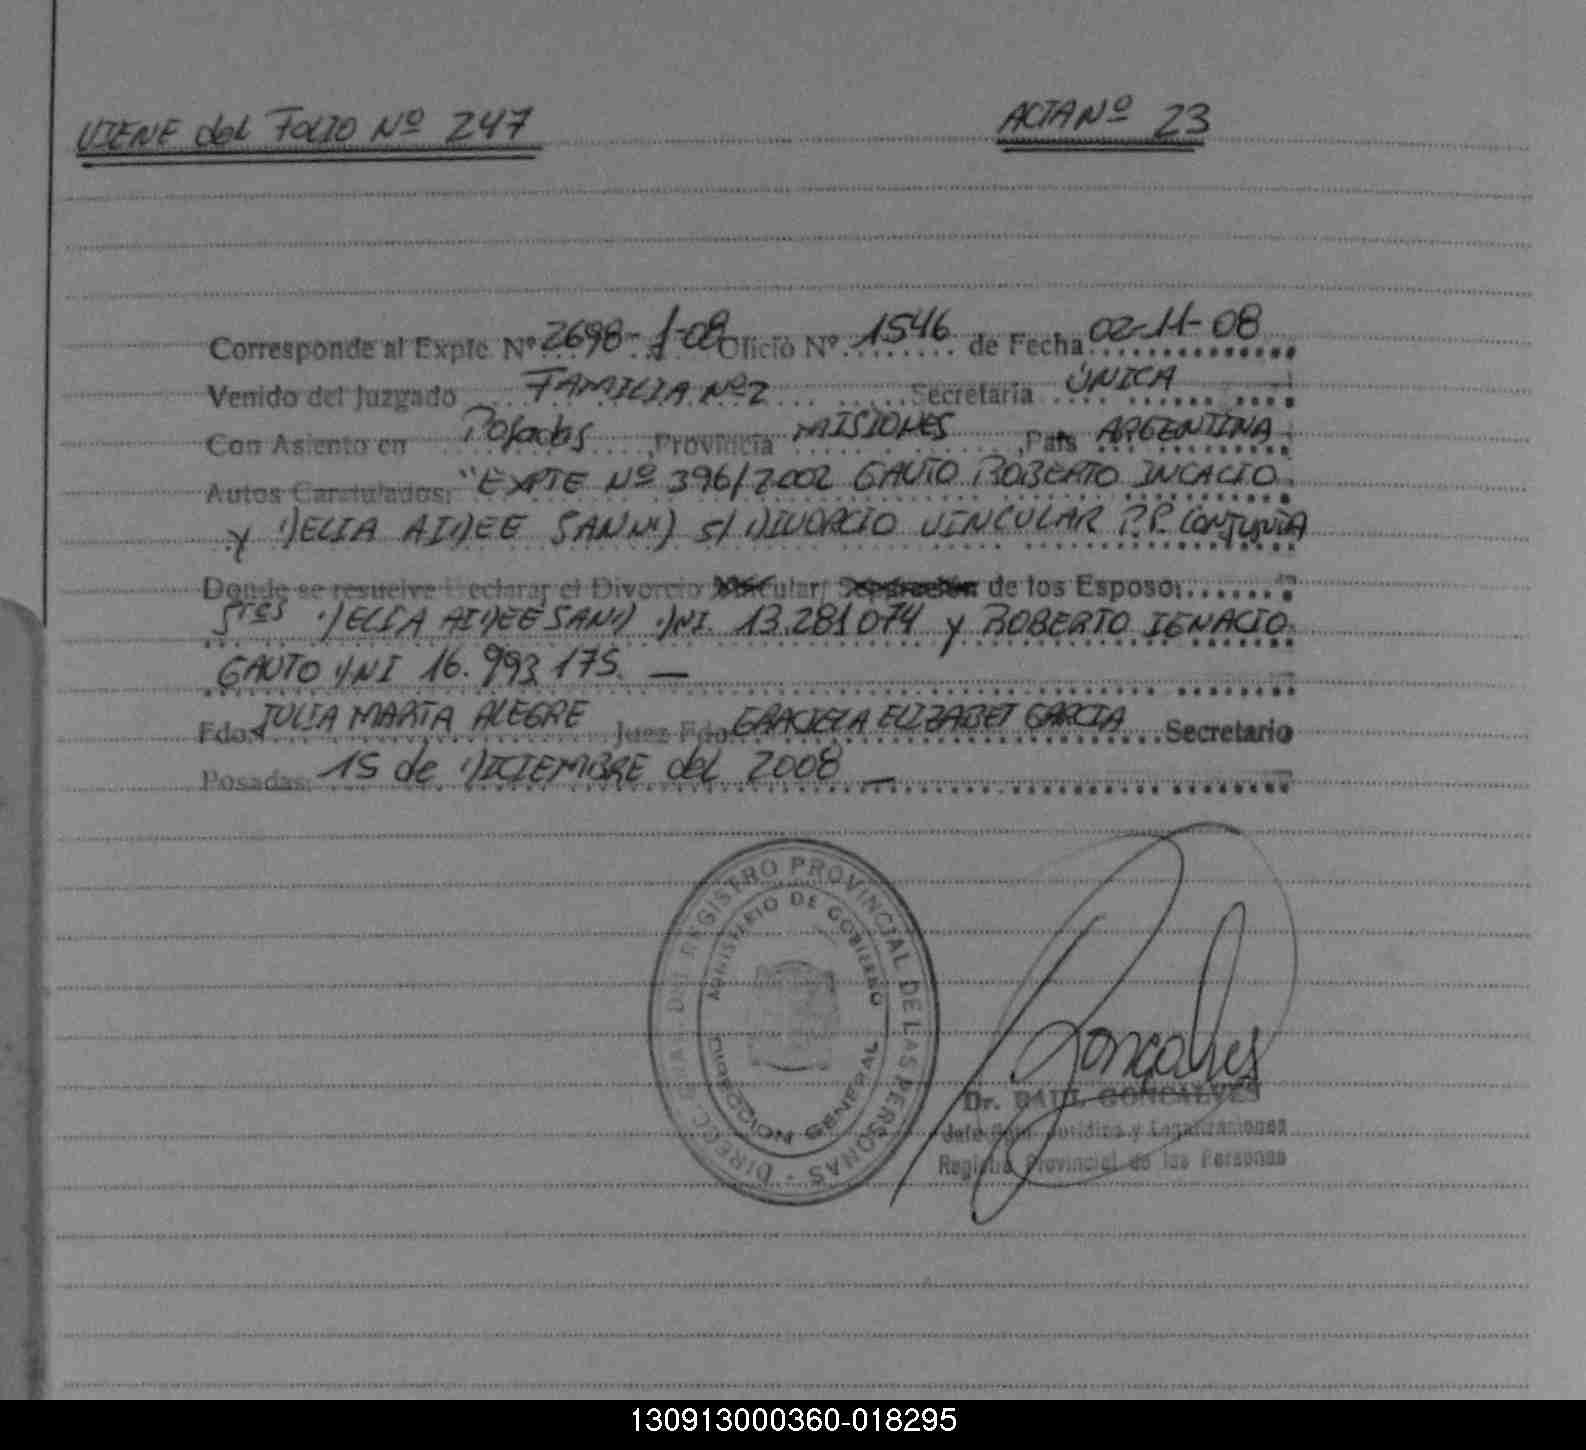 VIENE del FOLIO Nº 247 ACTA Nº 23
Corresponde al Expte Nº 2698-1-08 Oficio Nº 1546 de Fecha 02-11-08
Venido del Juzgado FAMILIA Nº 2 Secretaria ÚNICA
Con Asiento en Posadas, Provincia MISIONES, País ARGENTINA
Autos Caratulados: "EXPTE Nº 396/2002 GAUTO ROBERTO INCACIO
y DELIA AIDEE SAND S/ DIVORCIO VINCULAR P.P. CONJUNTA
Donde se resuelve Declarar el Divorcio Vincular/ Separación de los Esposo:
Sres DELIA AIDEE SAND DNI. 13.281074 y ROBERTO IGNACIO
GAUTO DNI 16.993.175. —
Fdo: JULIA MARTA ALEGRE Juez Fdo: GRACIELA ELIZABET GARCIA Secretario
Posadas: 15 de DICIEMBRE del 2008 —
DIRECC. GRAL. DEL REGISTRO PROVINCIAL DE LAS PERSONAS -
MINISTERIO DE GOBIERNO
DIRECCION GENERAL
Goncalves
Dr. RAUL GONCALVES
Jurídico y Legalizaciones
Registro Provincial de las Personas
130913000360-018295